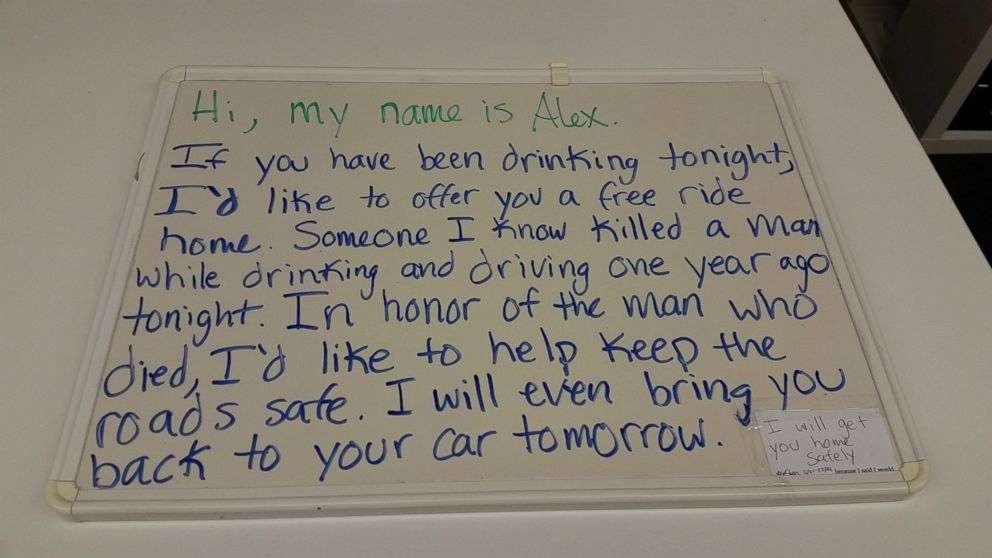 Hi, my name is Alex.
If you have been drinking tonight,
I'd like to offer you a free ride
home. Someone I know killed a man
while drinking and driving one year ago
tonight. In honor of the man who
died, I'd like to help keep the
roads safe. I will even bring you
back to your car tomorrow.
I will get
you home
safely
because I said I would.